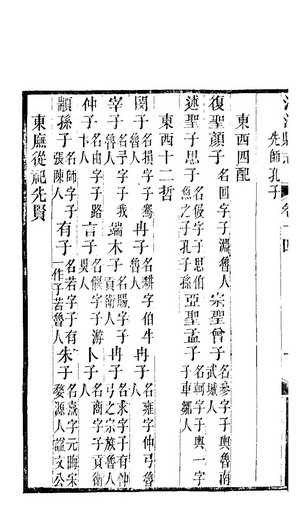 先師孔子
東西四配
復聖顏子 名回字子淵魯人 宗聖曾子 名參字子輿魯南武城人
述聖子思子 名伋字子思伯魚之子孔子孫 亞聖孟子 名軻字子輿一字子車鄒人
東西十二哲
閔子 名損字子騫魯人 冉子 名耕字伯牛魯人 冉子 名雍字仲弓魯人
宰子 名予字子我魯人 端木子 名賜字子貢衛人 冉子 名求字子有仲弓之宗族魯人
仲子 名由字子路卞人 言子 名偃字子游吳人 卜子 名商字子衛人
顓孫子 名師字子張陳人 有子 名若字子有一作子若魯人 朱子 名熹字元晦宋婺源人諡文公
東廡從祀先賢